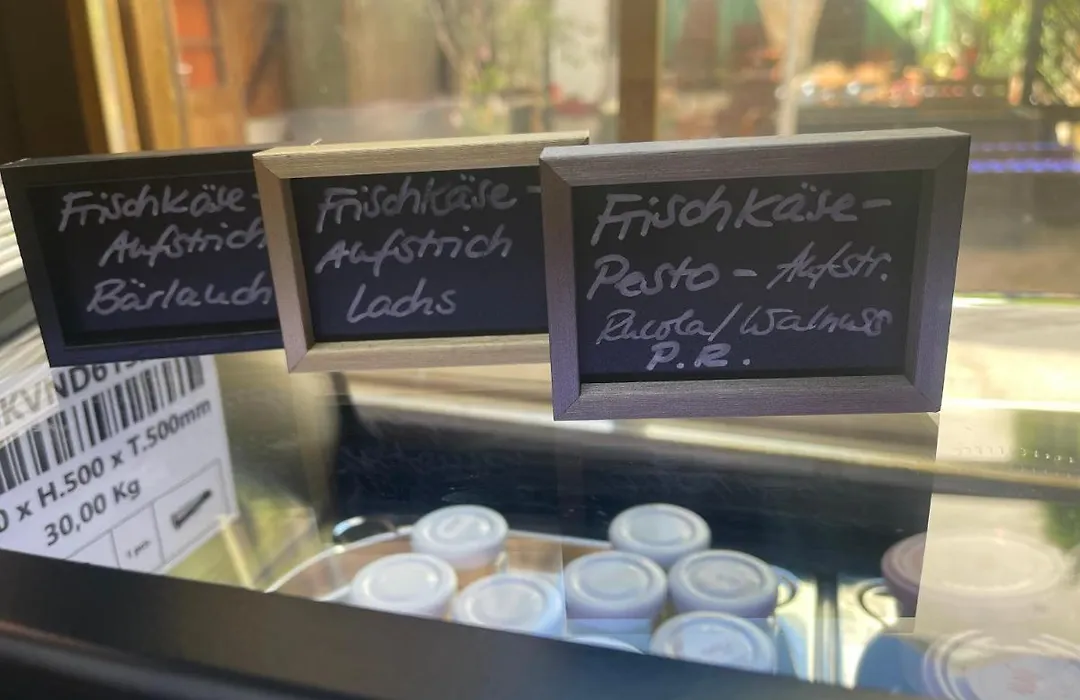 Frischkäse-
Aufstrich
Bärlauch
Frischkäse-
Aufstrich
Lachs
Frischkäse-
Pesto - Aufstr.
Rucola/Walnuss
P.R.
0 x H.500 x T.500mm
30,00 Kg